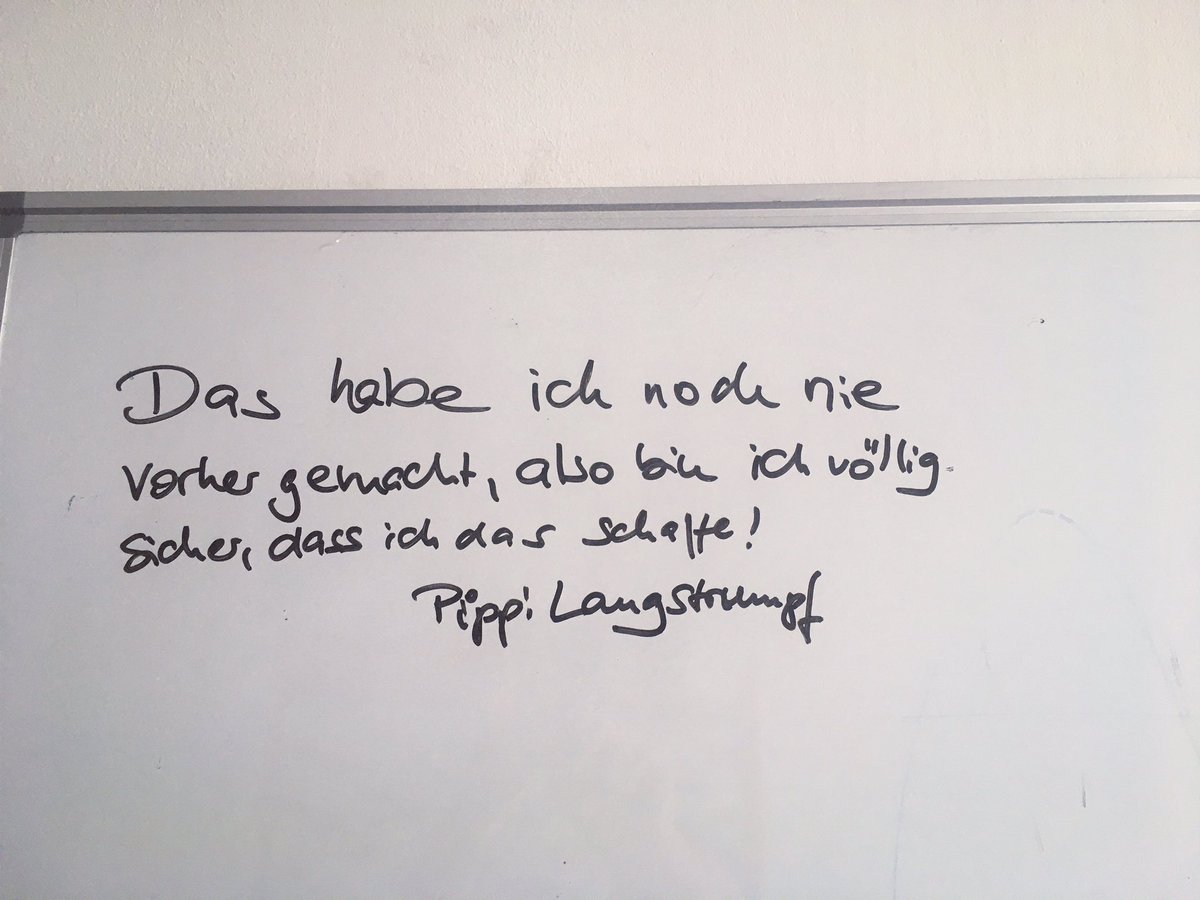 Das habe ich noch nie
vorher gemacht, also bin ich völlig
sicher, dass ich das schaffe!
Pippi Langstrumpf